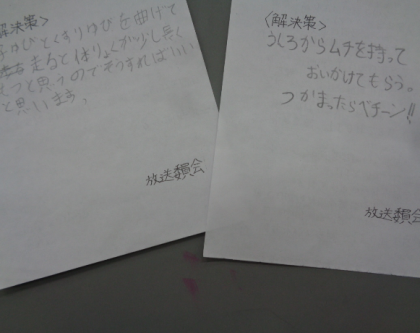 〈解決策〉
ゆびとくすりゆびを曲げて
走ると ほりょくが少し長く
つと思うのでそうすればいい
と思います。
放送委員会
〈解決策〉
うしろからムチを持って
おいかけてもらう。
つかまったらベチーン!!
放送委員会